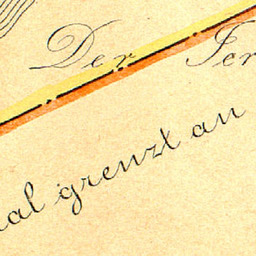 Der Ter
al grenzt an